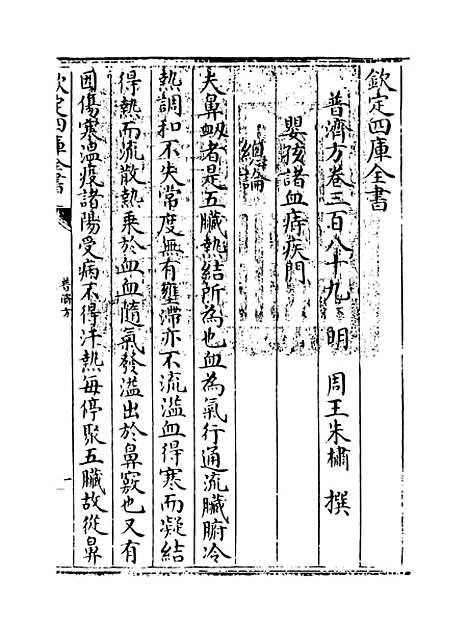 欽定四庫全書
普濟方卷三百八十九 明 周王朱橚 撰
嬰孩諸血痔疾門
總論
夫鼻衂者是五臟熱結所為也血為氣行通流臟腑冷
熱調和不失常度無有壅滯亦不流溢血得寒而凝結
得熱而流散熱乗於血血隨氣發溢出於鼻竅也又有
因傷寒温疫諸陽受病不得汗熱每停聚五臟故從鼻
欽定四庫全書
普濟方
一